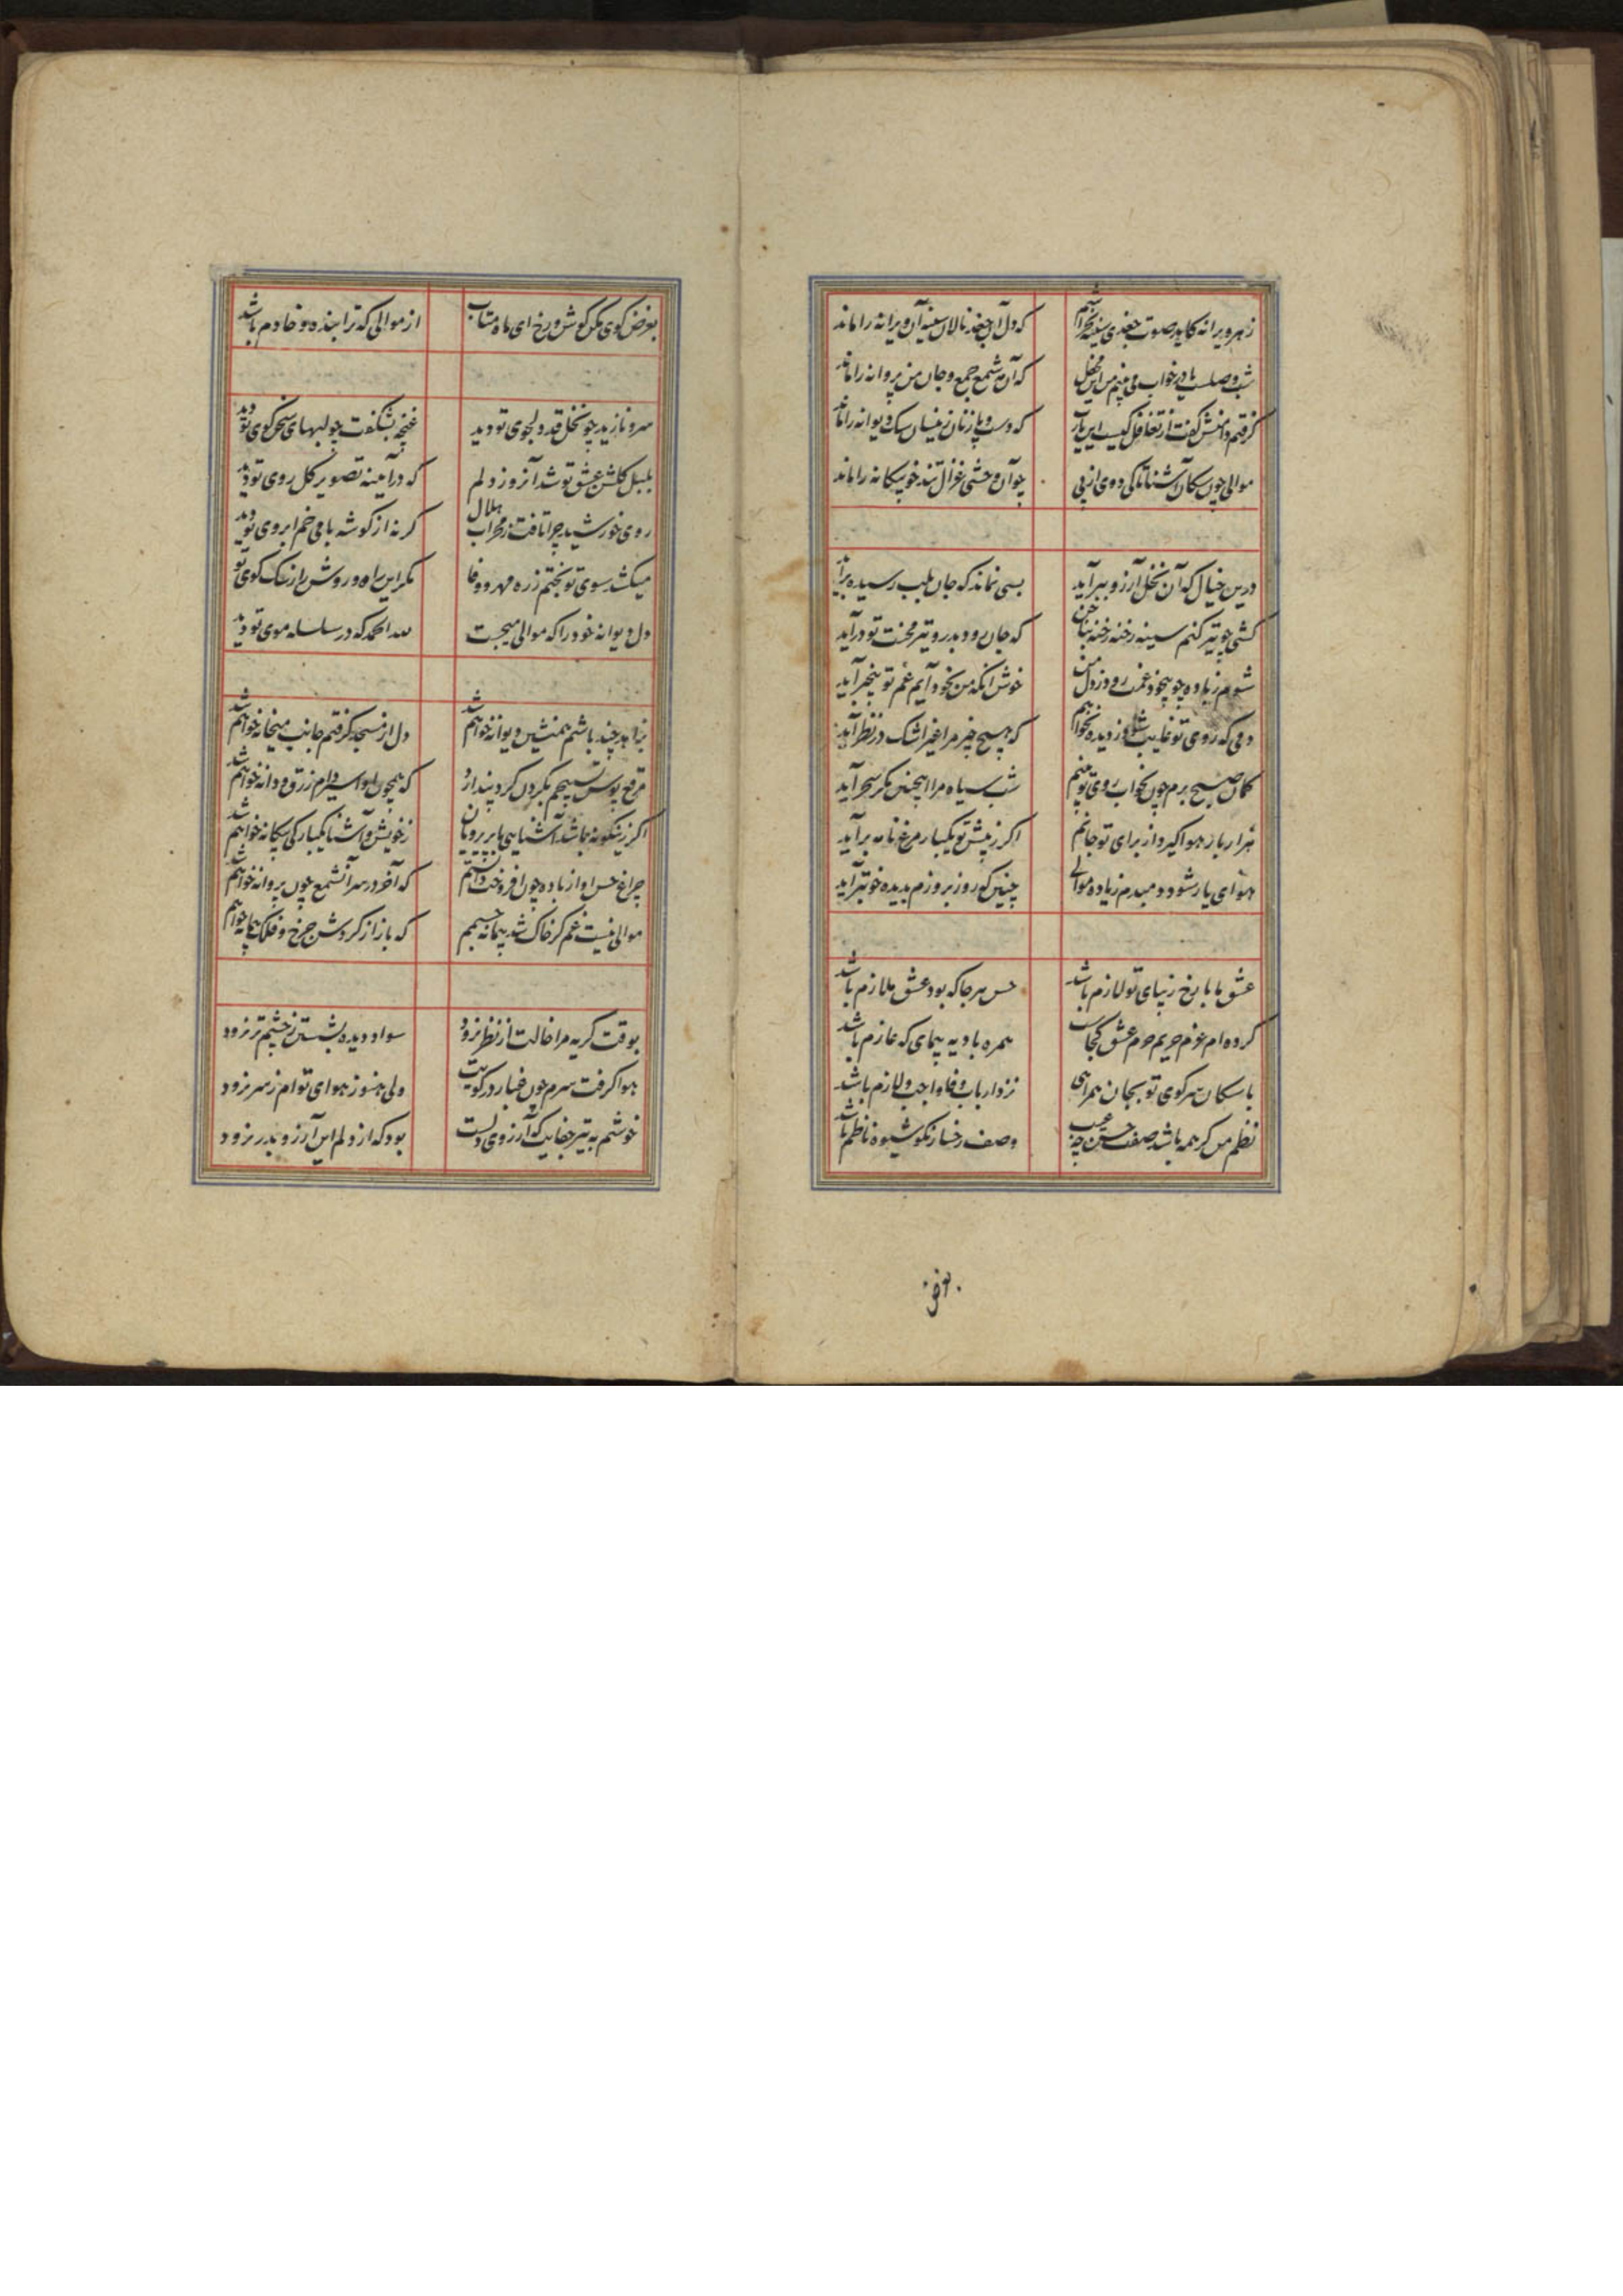 ز هر ویرانه کاید صوت جغدی سینه خراشم که دل آن جغد نالان سینه آن ویرانه را ماند
شب وصلست یا در خواب می بینم من این محفل که آن مه شمع جمع و جان من پروانه را ماند
گرفتم دامنش گفت از تغافل کیست این یارب که دست و پا زنان زینسان سگ دیوانه را ماند
موالی چون سگان آشنا تا کی دوی از پی چو آن وحشی غزال تند خو بیکانه را ماند
درین خیال که آن نخل آرزو ببر آید بسی نماند که جان بلب رسیده برآید
کشی چو تیر کنم سینه رخنه رخنه بناخن که جان رود بدر و تیر محنت تو درآید
شوم ز باده چو بیخود غمت رود ز دل من خوش آنکه من بخود آیم غم تو بیخبر آید
دمی که روی تو غایب شود ز دیده نخواهم که هیچ چیز مرا غیر اشک در نظر آید
گمان صبح برم چون بخواب روی تو بینم شب سیاه مرا اینچنین مگر سحر آید
هزار بار هوا گیرد از برای تو جانم اگر ز پیش تو یکبار مرغ نامه بر آید
هوای یار شود دمبدم زیاده موالی چنین که روز بروزم بدیده خوبتر آید
عشق ما با رخ زیبای تو لازم باشد حسن هر جا که بود عشق ملازم باشد
کرده ام عزم حریم حرم عشق کجاست همره بادیه پیمای که عازم باشد
با سگان سر کوی تو بجان همراهی نزد ارباب وفا واجب و لازم باشد
نظم من گر همه باشد صفت حسن چه عجب وصف رخسار نکو شیوه ناظم باشد
بغرض گوی مکن گوش و رخ ای ماه متاب از موالی که ترا بنده و خادم باشد
سرو نازید چو نخل قد دلجوی تو دید غنچه بشکفت چو لبهای سخن گوی تو دید
بلبل گلشن عشق تو شد آنروز دلم که در آینه تصویر گل روی تو دید
روی خورشید چرا تافت ز محراب هلال گر نه از گوشه بامی خم ابروی تو دید
میکشد سوی تو بختم ز ره مهر و وفا مگر این راه و روش را ز سگ کوی تو
دل دیوانه خود را که موالی میجست لله الحمد که در سلسله موی تو دید
بزاهد چند باشم همنشین دیوانه خواهم شد دل از مسجد گرفتم جانب میخانه خواهم شد
مرقع پوش تسبیحم بگردن کرد پندارد که همچون او اسیر دام زرق و دانه خواهم شد
اگر زینگونه باشد آشنایی با پریرویان ز خویش و آشنا یکبارگی بیکانه خواهم شد
چراغ حسن او از باده چون افروخت دانستم که آخر در سر آنشمع چون پروانه خواهم شد
موالی نیست غم گر خاک شد پیمانه جسمم که باز از گردش چرخ و فلک پیمانه خواهم
بوقت گریه مرا خالت از نظر نرود سواد دیده بشستن ز چشم تر نرود
هوا گرفت سرم چون غبار در کویت ولی هنوز هوای توام ز سر نرود
خوشم به تیر جفایت که آرزوی دلست بود که از دلم این آرزو بدر نرود
بغرض